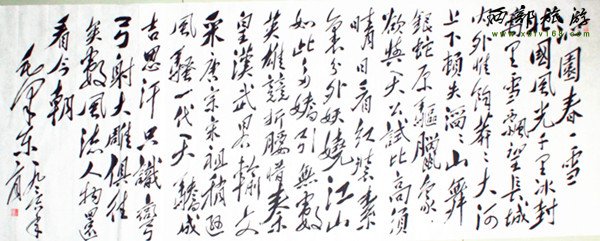 沁園春·雪
北國風光千里冰封
萬里雪飄望長城
内外惟餘莽々大河
上下頓失滔々山舞
銀蛇原驅臘象
欲與天公試比高須
晴日看紅裝素
裹分外妖嬈江山
如此多嬌引無數
英雄競折腰惜秦
皇漢武畧輸文
采唐宗宋祖稍遜
風騷一代天驕成
吉思汗只識彎
弓射大雕俱往
矣數風流人物還
看今朝
毛澤東一九三六年
旅游